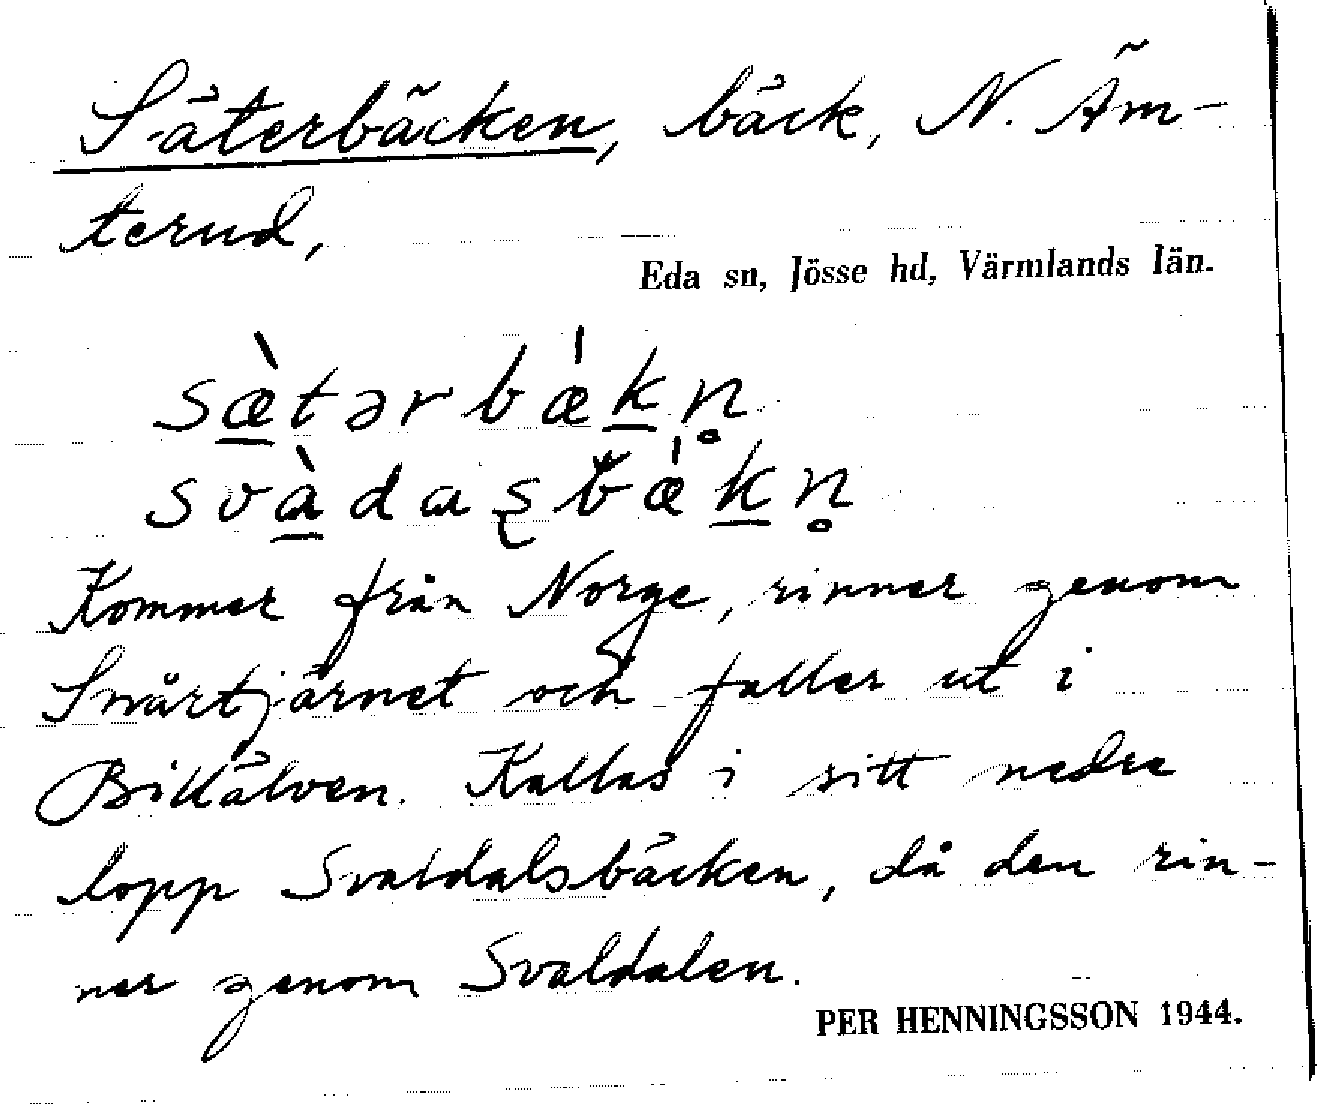 Säterbäcken, bäck, N. Äm-
terud,
Eda sn, Jösse hd, Värmlands län.
sæ̱̀tərbǽḵn̥
svɑ̱̀dɑʂbǽḵn̥
Kommer från Norge, rinner genom
Snårtjärnet och faller ut i
Billälven. Kallas i sitt nedre
lopp Svaldalsbäcken, då den rin-
ner genom Svaldalen.
PER HENNINGSSON 1944.